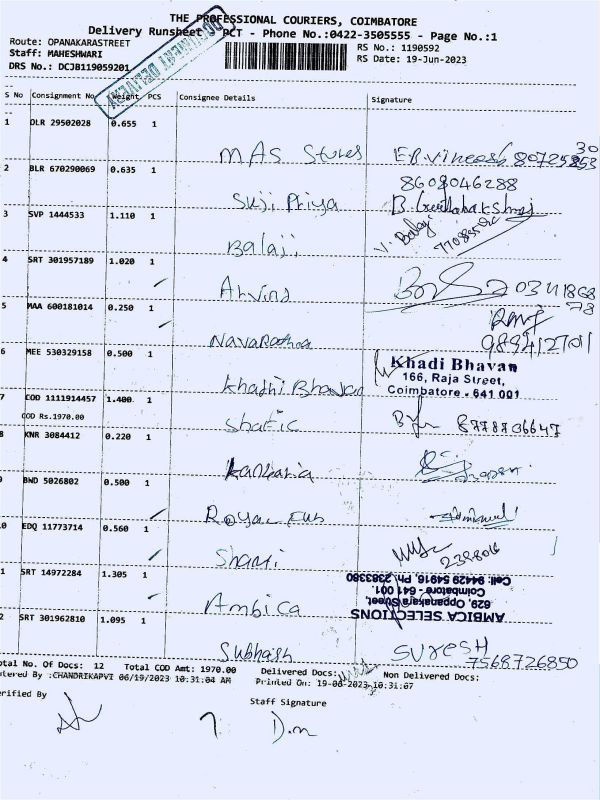 THE PROFESSIONAL COURIERS, COIMBATORE
Delivery Runsheet - PCT - Phone No.:0422-3505555 - Page No.:1
Route: OPANAKARASTREET
RS No.: 1190592
Staff: MAHESHWARI
RS Date: 19-Jun-2023
DRS No.: DCJB119059201
DOCUMENT DELIVERY
S No Consignment No. Weight PCS Consignee Details Signature
1 DLR 29502028 0.655 1
MAS Stores
2 BLR 670290069 0.635 1
8608046288
Suji Priya
3 SVP 1444533 1.110 1
V. Balaji
Balaji
4 SRT 301957189 1.020 1
Arvind
5 MAA 600181014 0.250 1
Navarathna
6 MEE 530329158 0.500 1
Khadi Bhavan
166, Raja Street,
Coimbatore - 641 001
Khadhi Bhavan
7 COD 1111914457 1.400 1
COD Rs.1970.00
Shafic
8778706647
8 KNR 3084412 0.220 1
9 BWD 5026802 0.500 1
0 EDQ 11773714 0.560 1
2398016
1 SRT 14972284 1.305 1
AMBICA SELECTIONS
629, Oppanakara Street,
Coimbatore - 641 001.
Cell: 94429 54916, Ph. 2383380
Ambica
2 SRT 301962810 1.095 1
Subhash
SURESH
7568726850
otal No. Of Docs: 12 Total COD Amt: 1970.00 Delivered Docs: Non Delivered Docs:
ntered By :CHANDRIKAPVI 06/19/2023 10:31:04 AM Printed On: 19-06-2023 10:31:07
erified By
Staff Signature